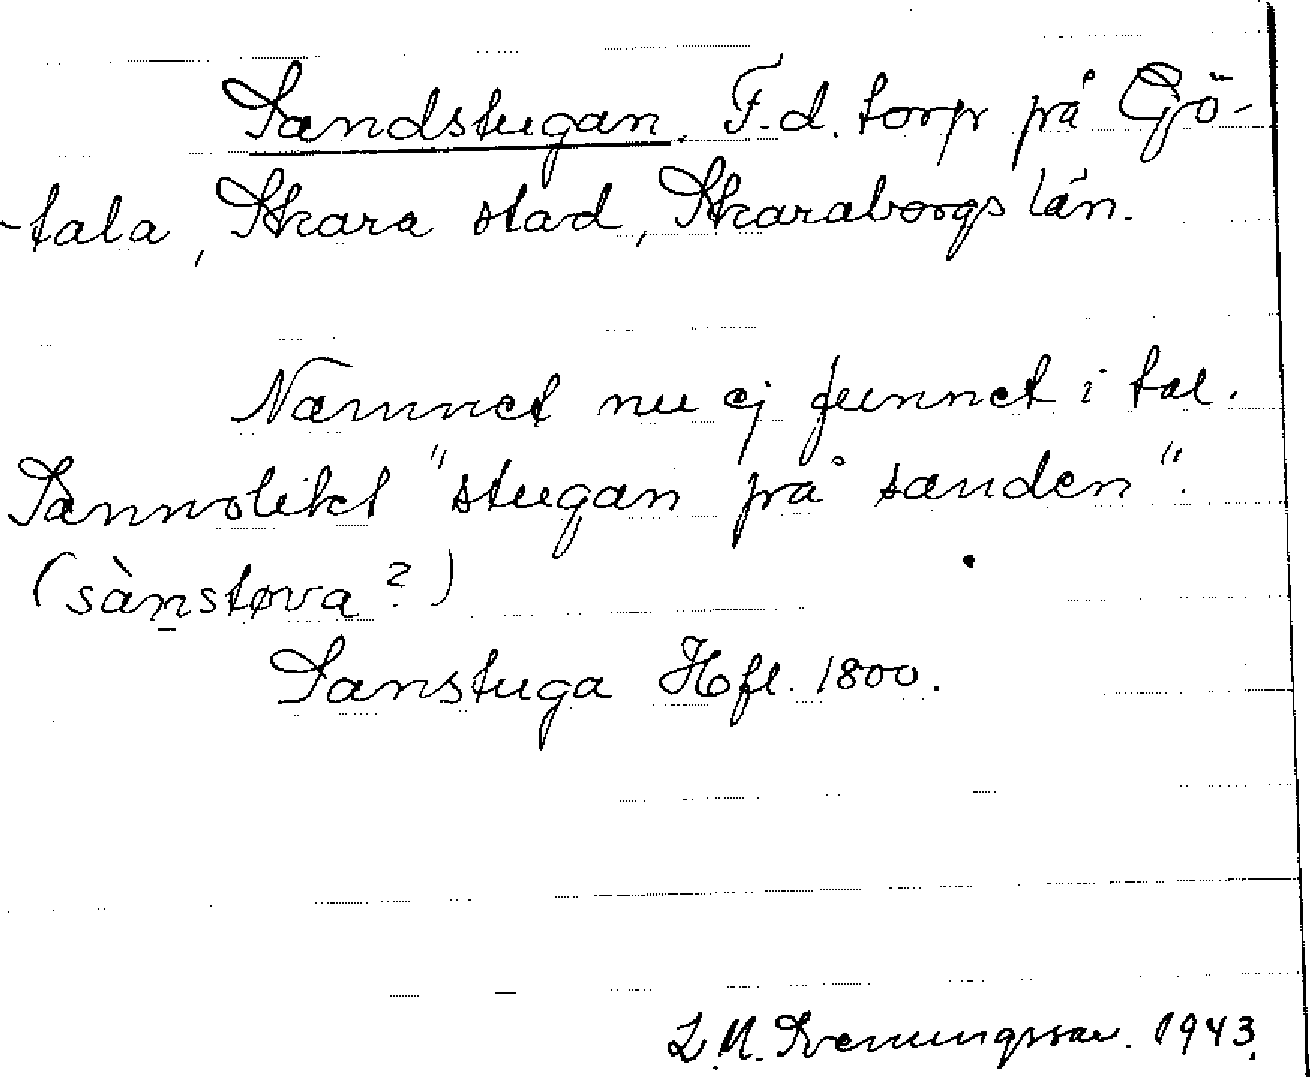 Sandstugan. F.d. torp på Gö-
-tala, Skara stad, Skaraborgs län.
Namnet nu ej funnet i tal.
Sannolikt "stugan på sanden".
(sàn̲støva?)
Sanstuga Hfl. 1800.
L.M. Svenungsson. 1943.